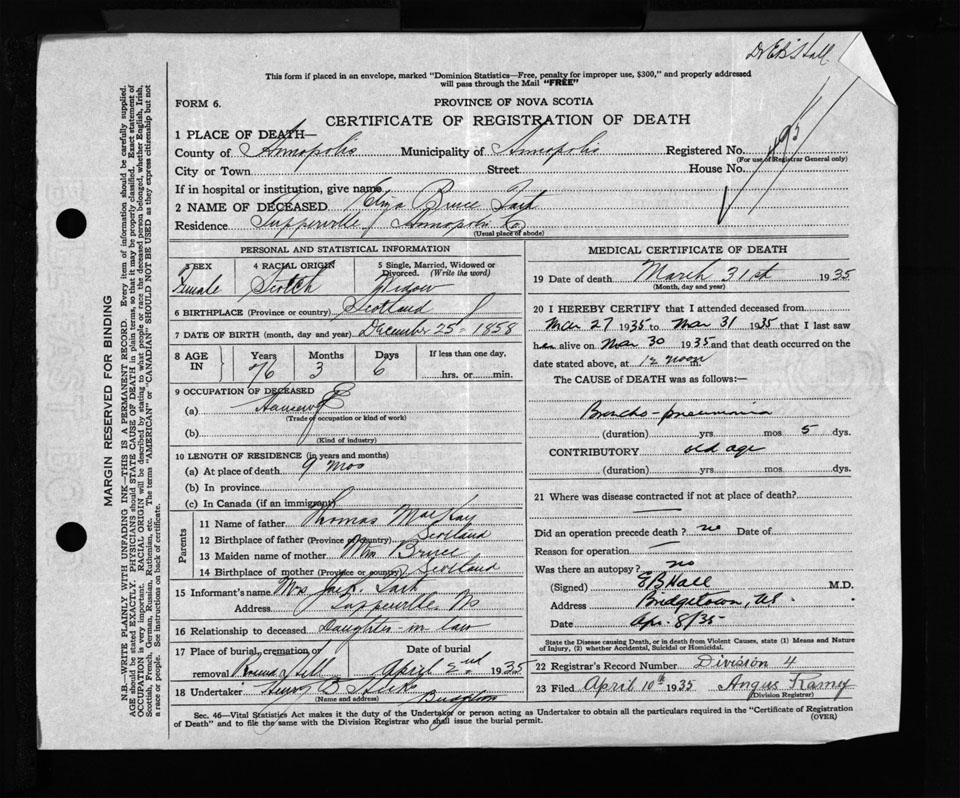 Dr E B Hall
This form if placed in an envelope, marked "Dominion Statistics—Free, penalty for improper use, $300," and properly addressed
will pass through the Mail "FREE"
FORM 6.
PROVINCE OF NOVA SCOTIA
CERTIFICATE OF REGISTRATION OF DEATH
1 PLACE OF DEATH—
County of Annapolis Municipality of Annapolis Registered No.
(For use of Registrar General only)
City or Town Street House No.
If in hospital or institution, give name
2 NAME OF DECEASED Eliza Bruce
Residence Tupperville Annapolis Co
(Usual place of abode)
PERSONAL AND STATISTICAL INFORMATION
3 SEX 4 RACIAL ORIGIN 5 Single, Married, Widowed or
Divorced. (Write the word)
Female Scotch Widow
6 BIRTHPLACE (Province or country) Scotland
7 DATE OF BIRTH (month, day and year) December 25 - 1858
8 AGE IN Years Months Days If less than one day,
76 3 6 hrs. or min.
9 OCCUPATION OF DECEASED
(a)
(Trade or occupation or kind of work)
(b)
(Kind of industry)
10 LENGTH OF RESIDENCE (in years and months)
(a) At place of death 9 mos
(b) In province
(c) In Canada (if an immigrant)
Parents
11 Name of father Thomas MacKay
12 Birthplace of father (Province or country) Scotland
13 Maiden name of mother Bruce
14 Birthplace of mother (Province or country) Scotland
15 Informant's name Mrs
Address Tupperville NS
16 Relationship to deceased Daughter-in law
17 Place of burial, cremation or Date of burial
removal Round Hill April 2nd 1935
18 Undertaker
(Name and address)
MEDICAL CERTIFICATE OF DEATH
19 Date of death March 31st 1935
(Month, day and year)
20 I HEREBY CERTIFY that I attended deceased from
Mar 27 1935 to Mar 31 1935 that I last saw
h alive on Mar 30 1935 and that death occurred on the
date stated above, at 12 noon m.
The CAUSE OF DEATH was as follows:—
Broncho-pneumonia
(duration) yrs mos 5 dys.
CONTRIBUTORY old age
(duration) yrs. mos. dys.
21 Where was disease contracted if not at place of death?
Did an operation precede death? no Date of
Reason for operation
Was there an autopsy? no
(Signed) E B Hall M.D.
Address Bridgetown, NS.
Date Apr. 8/35
State the Disease causing Death, or in death from Violent Causes, state (1) Means and Nature
of Injury, (2) whether Accidental, Suicidal or Homicidal.
22 Registrar's Record Number Division 4
23 Filed April 10th 1935 Angus
(Division Registrar)
Sec. 46—Vital Statistics Act makes it the duty of the Undertaker or person acting as Undertaker to obtain all the particulars required in the "Certificate of Registration
of Death" and to file the same with the Division Registrar who shall issue the burial permit.
(OVER)
MARGIN RESERVED FOR BINDING
N.B.—WRITE PLAINLY WITH UNFADING INK—THIS IS A PERMANENT RECORD. Every item of information should be carefully supplied.
AGE should be stated EXACTLY. PHYSICIANS should STATE CAUSE OF DEATH in plain terms, so that it may be properly classified. Exact statement of
OCCUPATION is very important. RACIAL ORIGIN will be described by stating to what people or race the deceased person belonged, whether English, Irish,
Scottish, French, German, Russian, Ruthenian, etc. The terms "AMERICAN" or "CANADIAN" SHOULD NOT BE USED as they express citizenship but not
a race or people. See instructions on back of certificate.